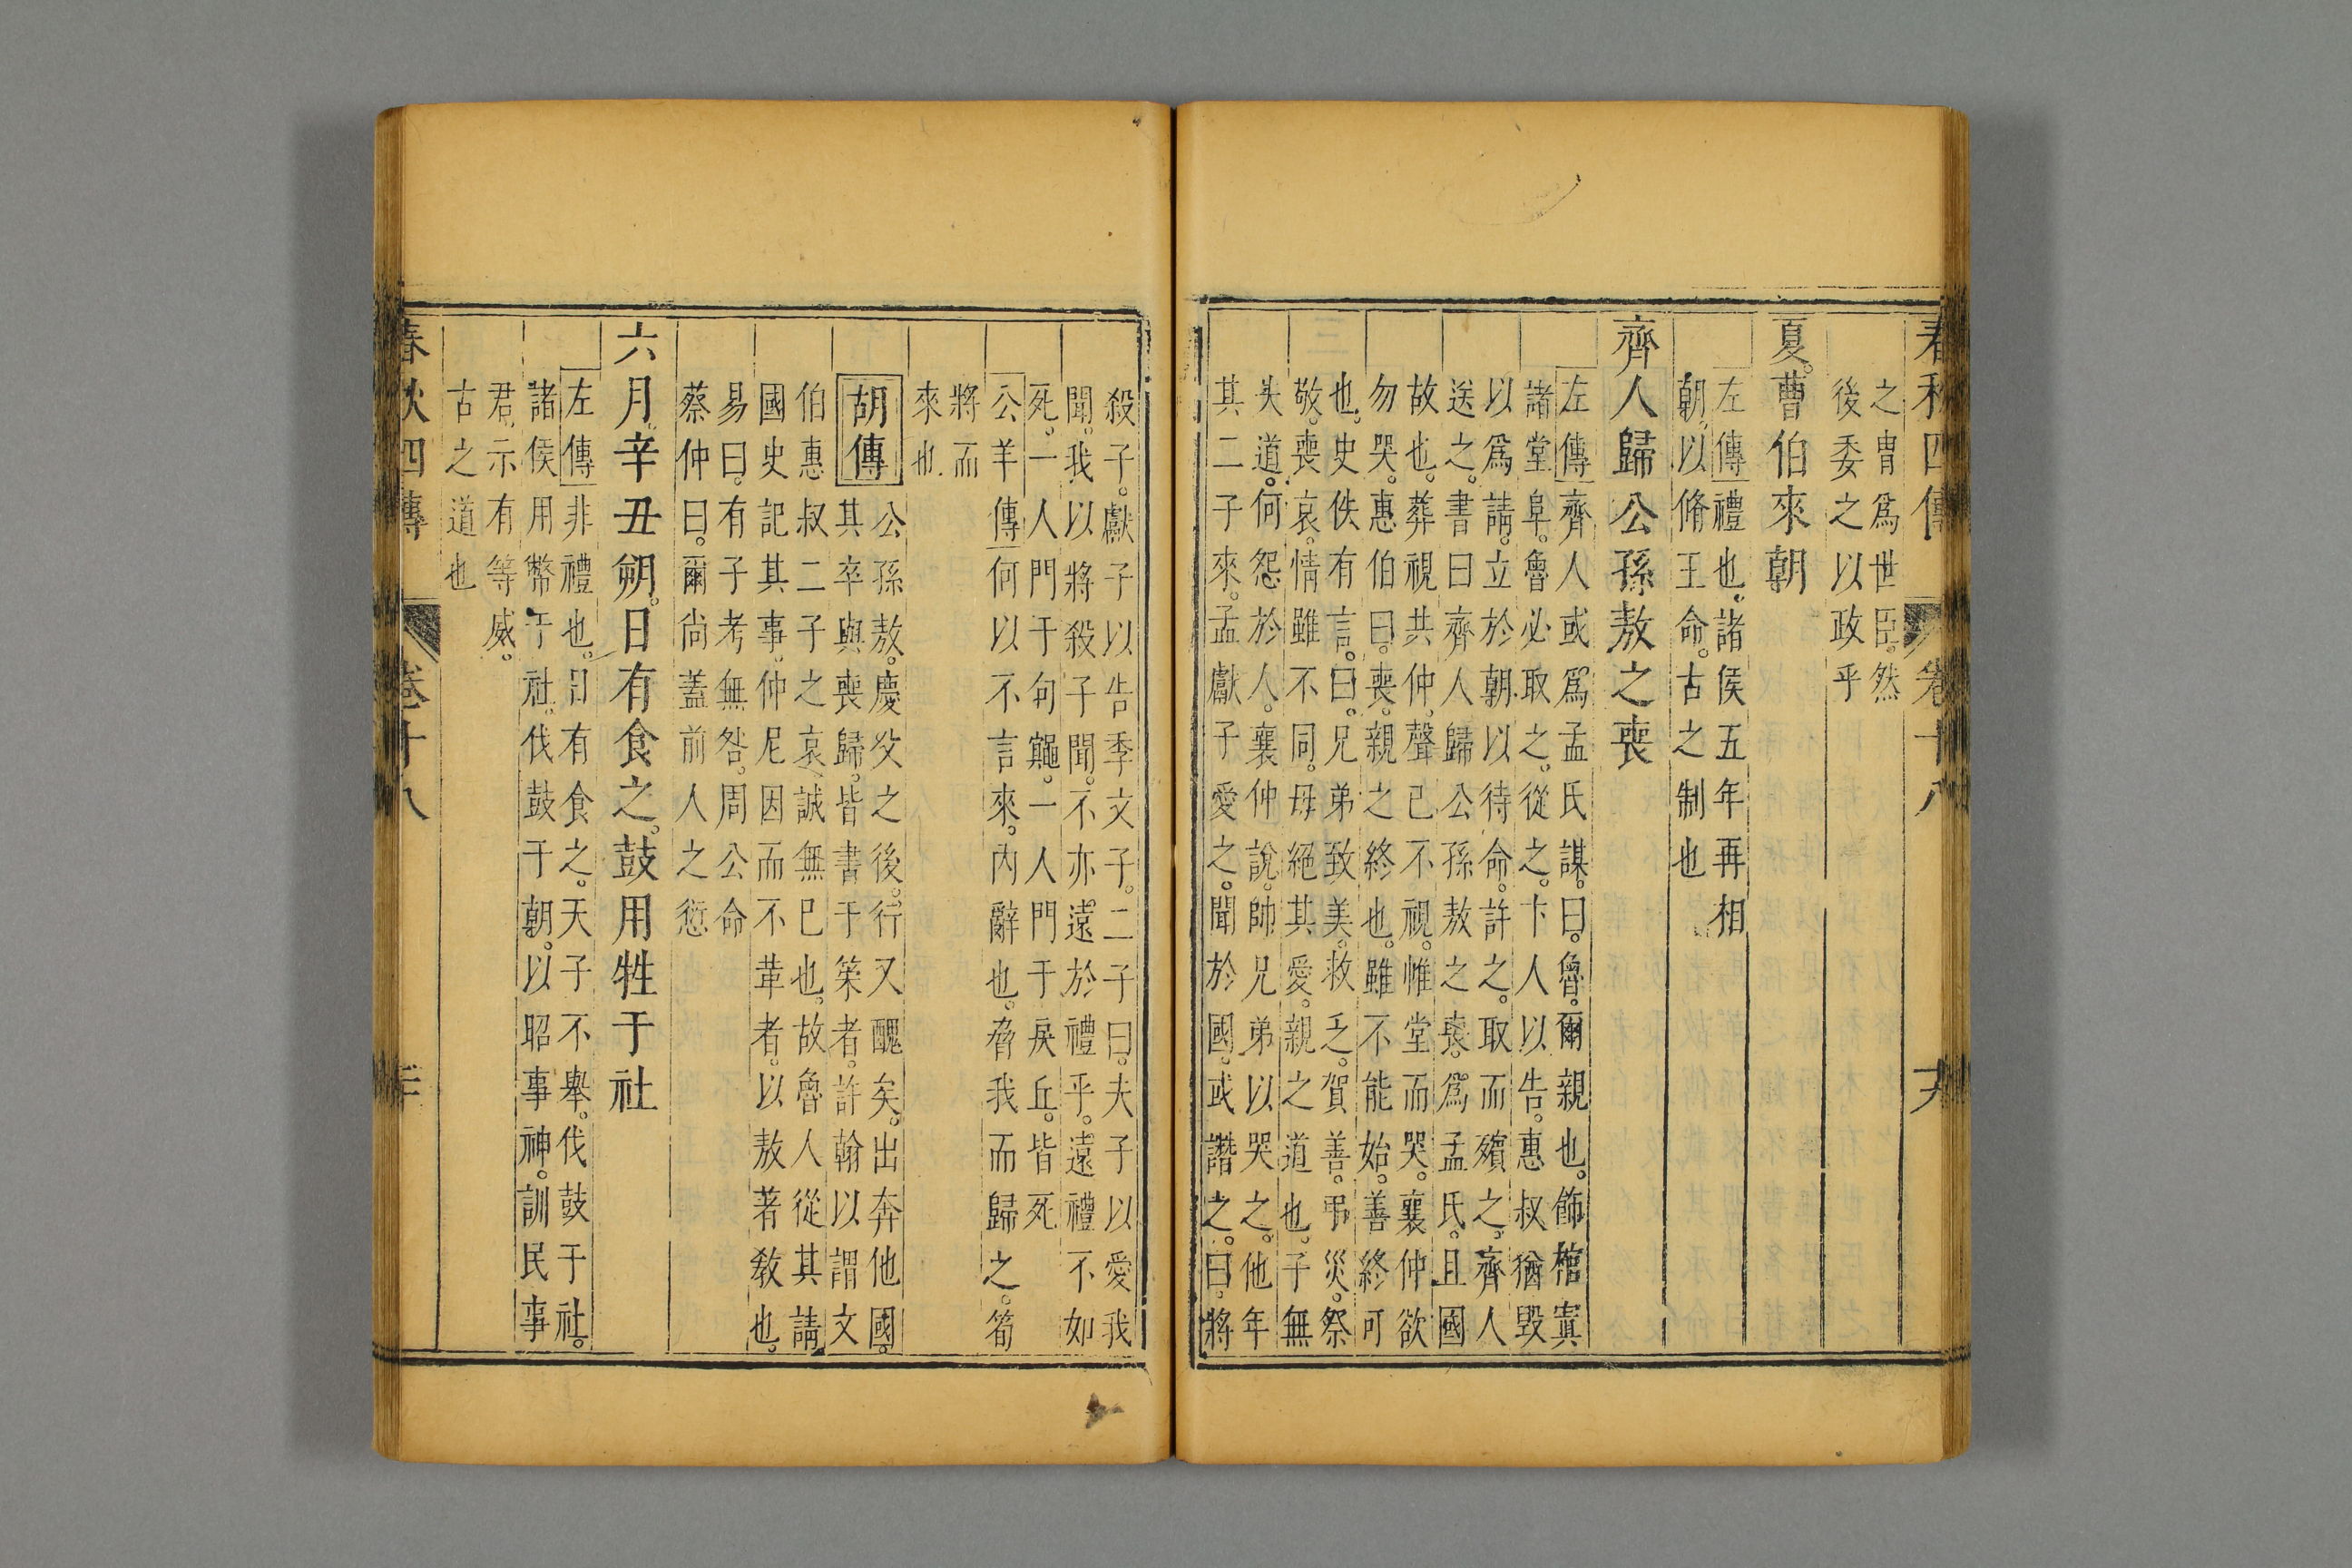 春秋四傳 卷十八
之胄爲世臣。然
後委之以政乎
夏。曹伯來朝
左傳禮也。諸侯五年再相
朝。以脩王命。古之制也
齊人歸公孫敖之喪
左傳齊人或爲孟氏謀。曰。魯。爾親也。飾棺寘
諸堂阜。魯必取之。從之。卞人以告。惠叔猶毀
以爲請。立於朝。以待命。許之。取而殯之。齊人
送之。書曰齊人歸公孫敖之喪。爲孟氏。且國
故也。葬視共仲。聲己不視。帷堂而哭。襄仲欲
勿哭。惠伯曰。喪。親之終也。雖不能始。善終可
也。史佚有言。曰。兄弟致美。救乏。賀善。弔災。祭
敬。喪哀。情雖不同。毋絕其愛。親之道也。子無
失道。何怨於人。襄仲說。帥兄弟以哭之。他年
其二子來。孟獻子愛之。聞於國。或譖之。曰。將
殺子。獻子以告季文子。二子曰。夫子以愛我
聞。我以將殺子聞。不亦遠於禮乎。遠禮不如
死。一人門于句鼆。一人門于戾丘。皆死
公羊傳何以不言來。內辭也。脅我而歸之。筍
將而
來也
胡傳公孫敖。慶父之後。行又醜矣。出奔他國。
其卒與喪歸。皆書于策者。許翰以謂文
伯惠叔二子之哀。誠無已也。故魯人從其請
國史記其事。仲尼因而不革者。以敖著敎也。
易曰。有子考無咎。周公命
蔡仲曰。爾尙蓋前人之愆
六月。辛丑朔。日有食之。鼓用牲于社
左傳非禮也。日有食之。天子不舉。伐鼓于社。
諸侯用幣于社。伐鼓于朝。以昭事神。訓民事
君。示有等威。
古之道也
春秋四傳 卷十八